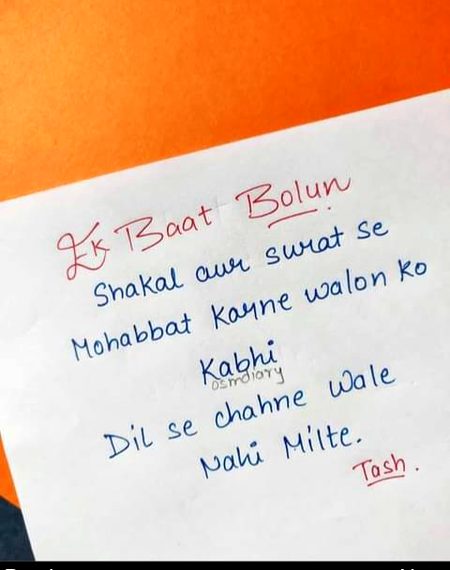 Ek Baat Bolun
Shakal aur surat se
Mohabbat karne walon ko
Kabhi
osmdiary
Dil se chahne wale
Nahi Milte.
Tash.